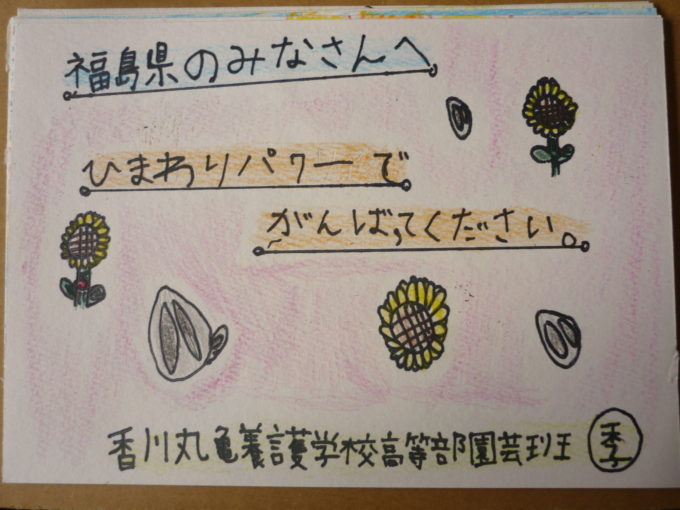 福島県のみなさんへ
ひまわりパワーで
がんばってください。
香川丸亀養護学校高等部園芸班 季